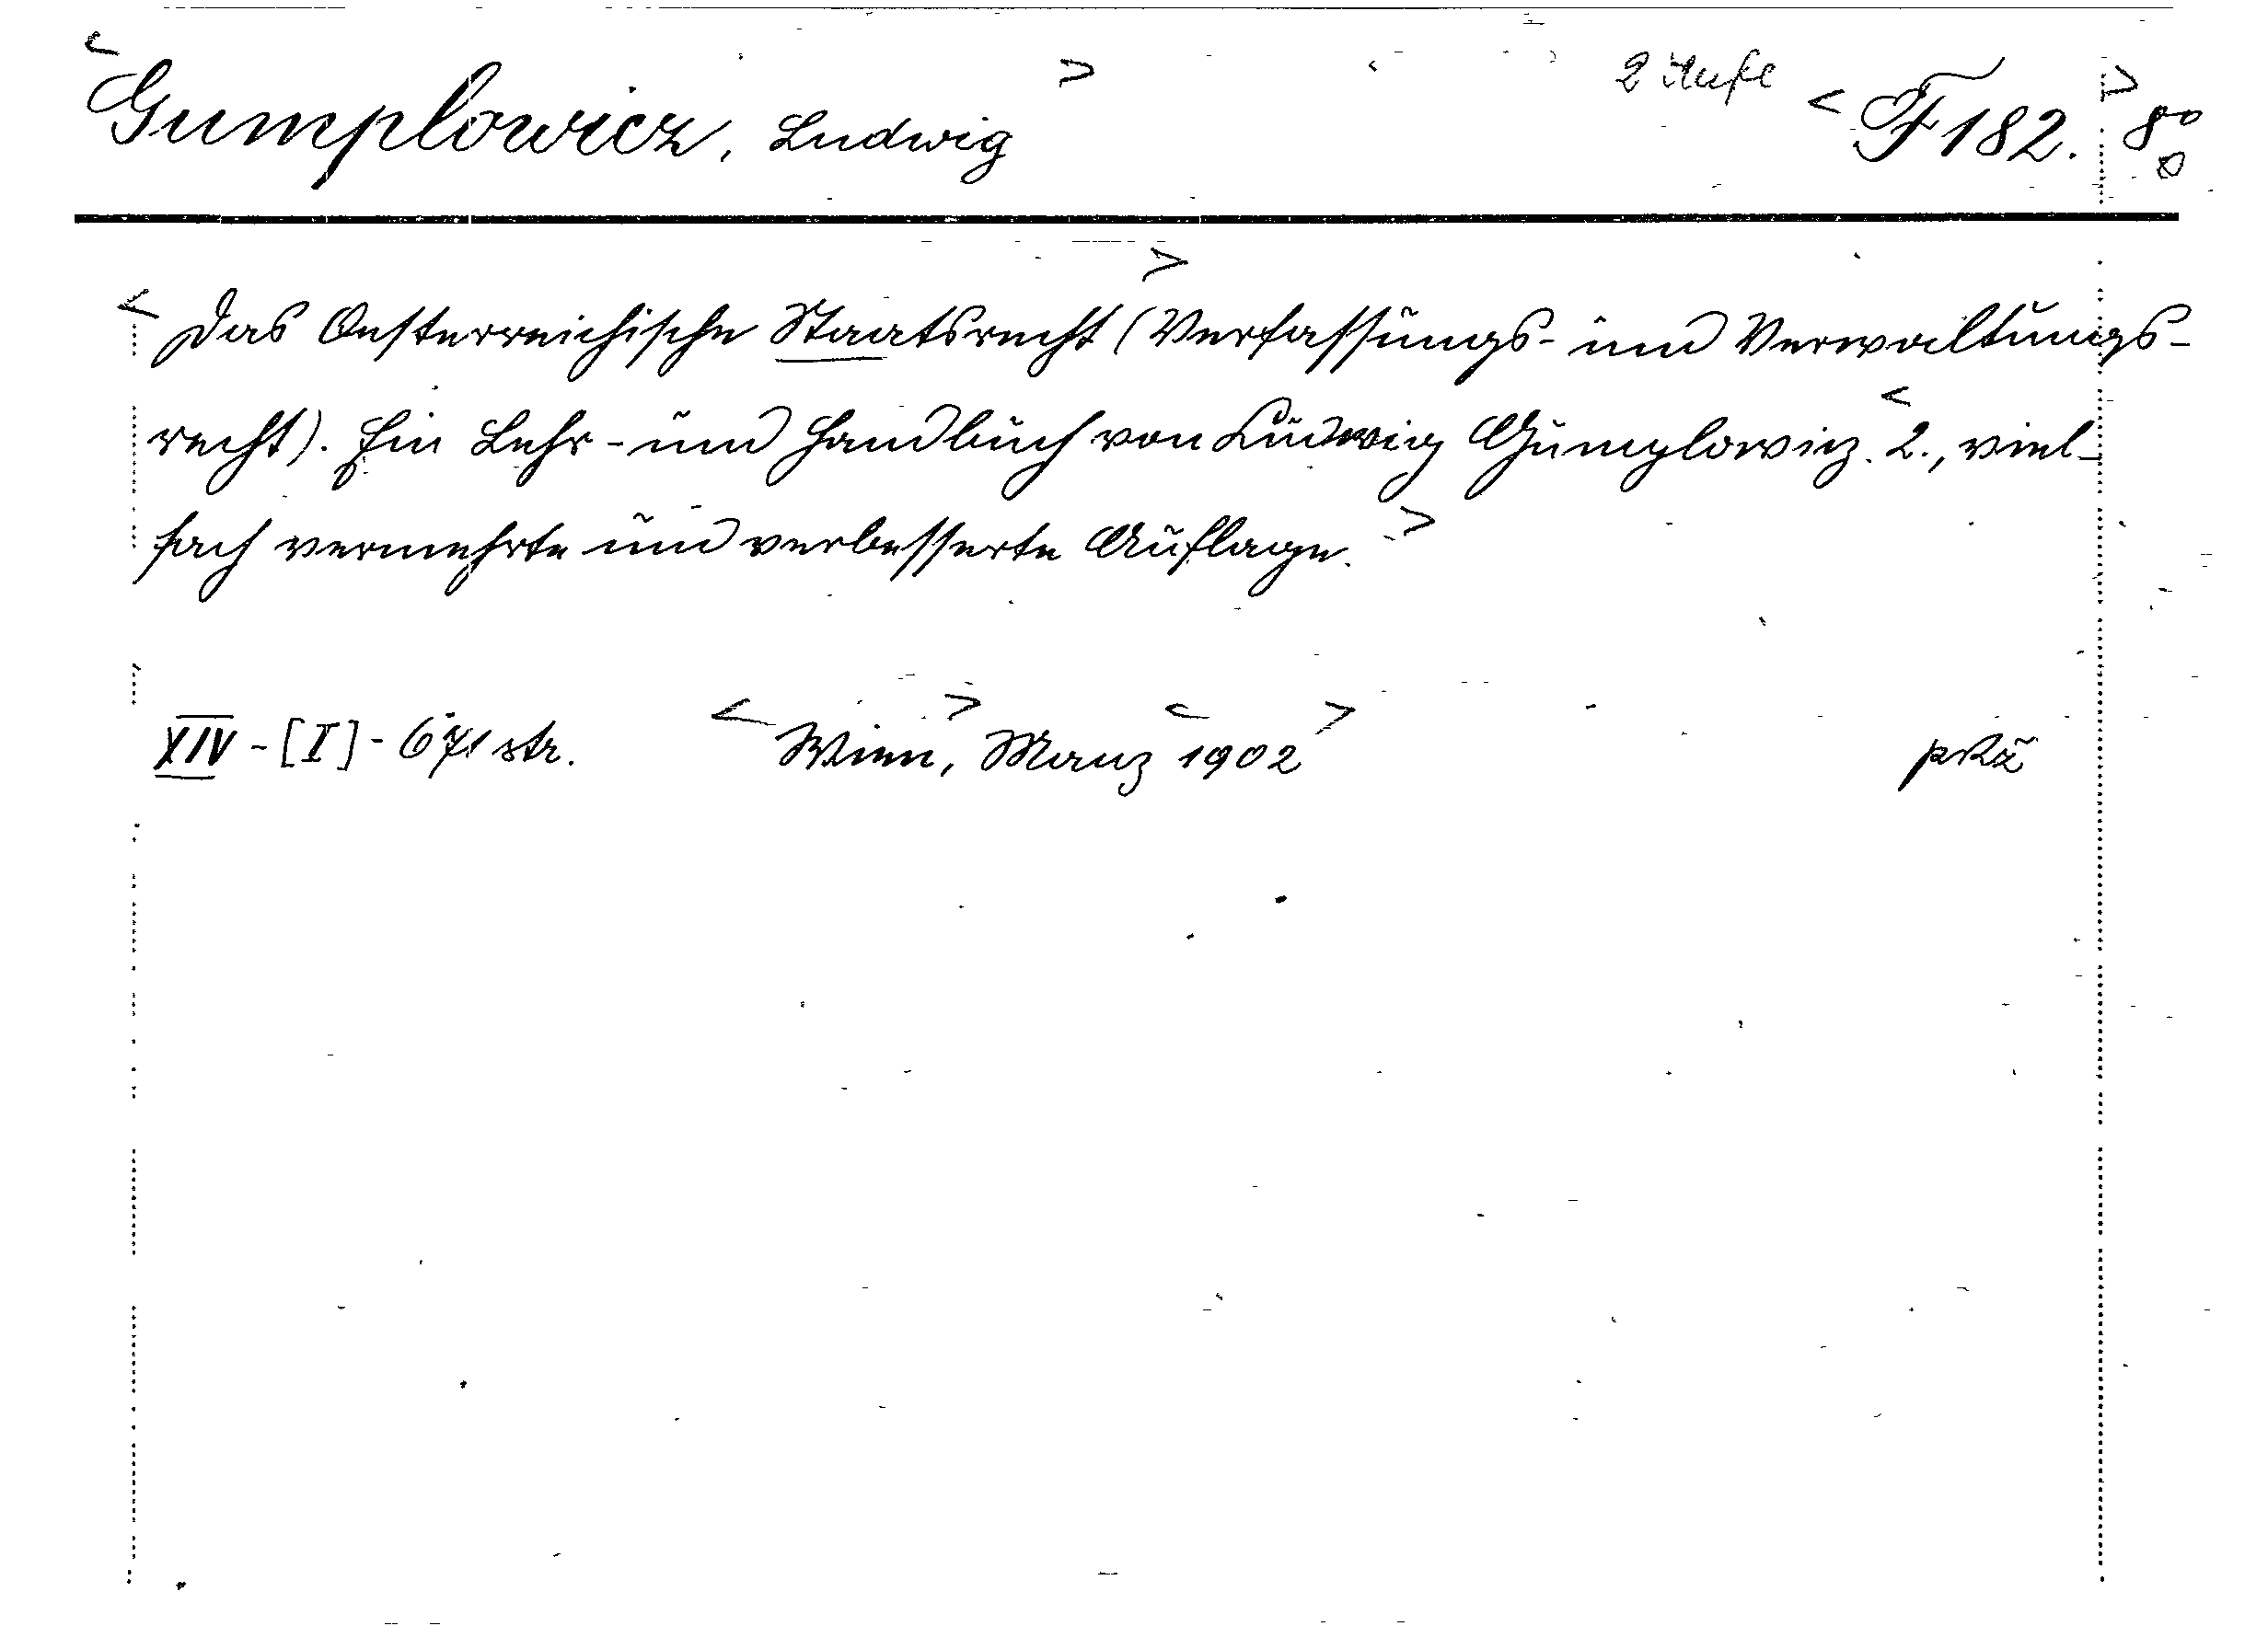 <Gumplowicz, Ludwig> 2 Aufl <F 182.> 8°
<Das Oesterreichische Staatsrecht> (Verfassungs- und Verwaltungs-
recht). Ein Lehr- und Handbuch von Ludwig Gumplowicz. <2., viel-
fach vermehrte und verbesserte Auflage.>
XIV - [I] - 671 str. <Wien>, Manz <1902>